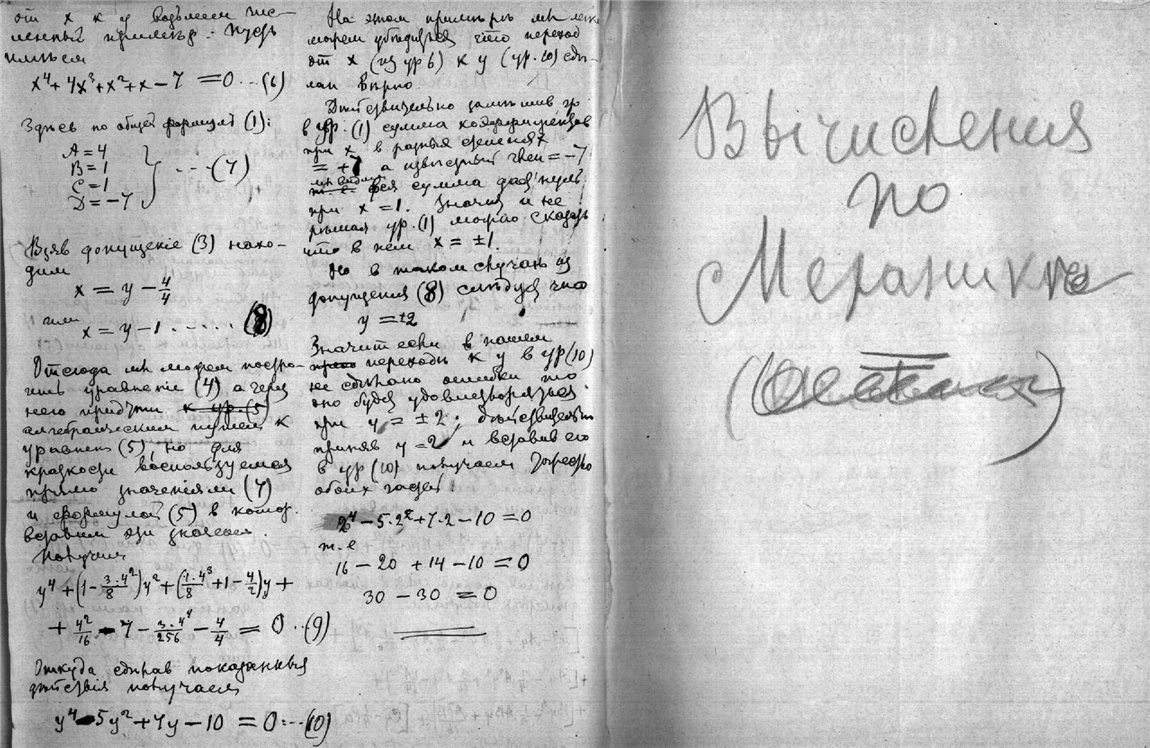 от x к y возьмем чис-
ленный пример. Пусть
имеем
x⁴ + 4x³ + x² + x − 7 = 0 ... (6)
Здесь по общей формуле (1):
A = 4
B = 1
C = 1
D = −7
} ... (7)
Взяв допущение (3) нахо-
дим
x = y − 4/4
или
x = y − 1 ..... (8)
Отсюда мы можем построить
уравнение (4) а через
него придти к ур. (5)
алгебраическим путем к
уравнен (5), но для
краткости воспользуемся
прямо значениями (7)
и формулой (5) в котор.
вставим эти значен.
Получим
y⁴ + (1 − 3·4²/8) y² + (1·4³/8 + 1 − 4/2) y +
+ 4²/16 − 7 − 3·4⁴/256 − 4/4 = 0 ... (9)
Откуда сделав показанныя
действия получаем
y⁴ − 5y² + 7y − 10 = 0 ... (10)
На этом примере мы легко
можем убедиться что переход
от x (из ур 6) к y (ур. 10) сде-
лан верно.
Действительно заметив
в ур. (1) сумма коэффициентов
при x в разных степенях
= +7 а известный член = −7
мы видим сумма дает нуль
при x = 1. Значит и не
решая ур. (1) можно сказать
что в нем x = ±1.
Но в таком случае из
допущения (8) следует что
y = ±2
Значит если в нашем
переходе к y в ур (10)
не сделано ошибки то
оно будет удовлетворяться
при y = ±2; действительно
приняв y = 2 и вставив его
в ур (10) получаем
обоих частей
2⁴ − 5·2² + 7·2 − 10 = 0
т.е
16 − 20 + 14 − 10 = 0
30 − 30 = 0
Вычисления
по
Механике